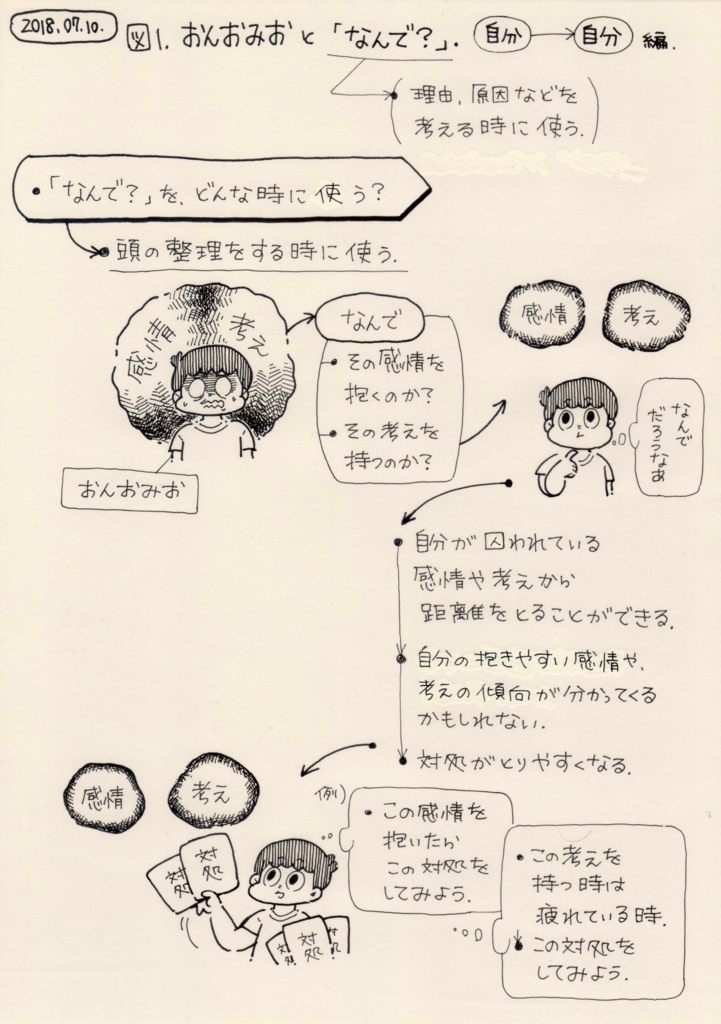 2018.07.10.
図1. おんおみおと「なんで？」. 自分 → 自分 編.
理由, 原因などを
考える時に使う.
・「なんで？」を、どんな時に使う？
・頭の整理をする時に使う.
感情 考え
おんおみお
なんで
・その感情を
抱くのか？
・その考えを
持つのか？
感情 考え
なんで
だろうなあ
・自分が囚われている
感情や考えから
距離をとることができる.
・自分の抱きやすい感情や、
考えの傾向が分かってくる
かもしれない.
・対処がとりやすくなる.
感情 考え
対処
対処
対処
対処
対処
例)
・この感情を
抱いたら
この対処を
してみよう.
・この考えを
持つ時は
疲れている時.
・この対処を
してみよう.